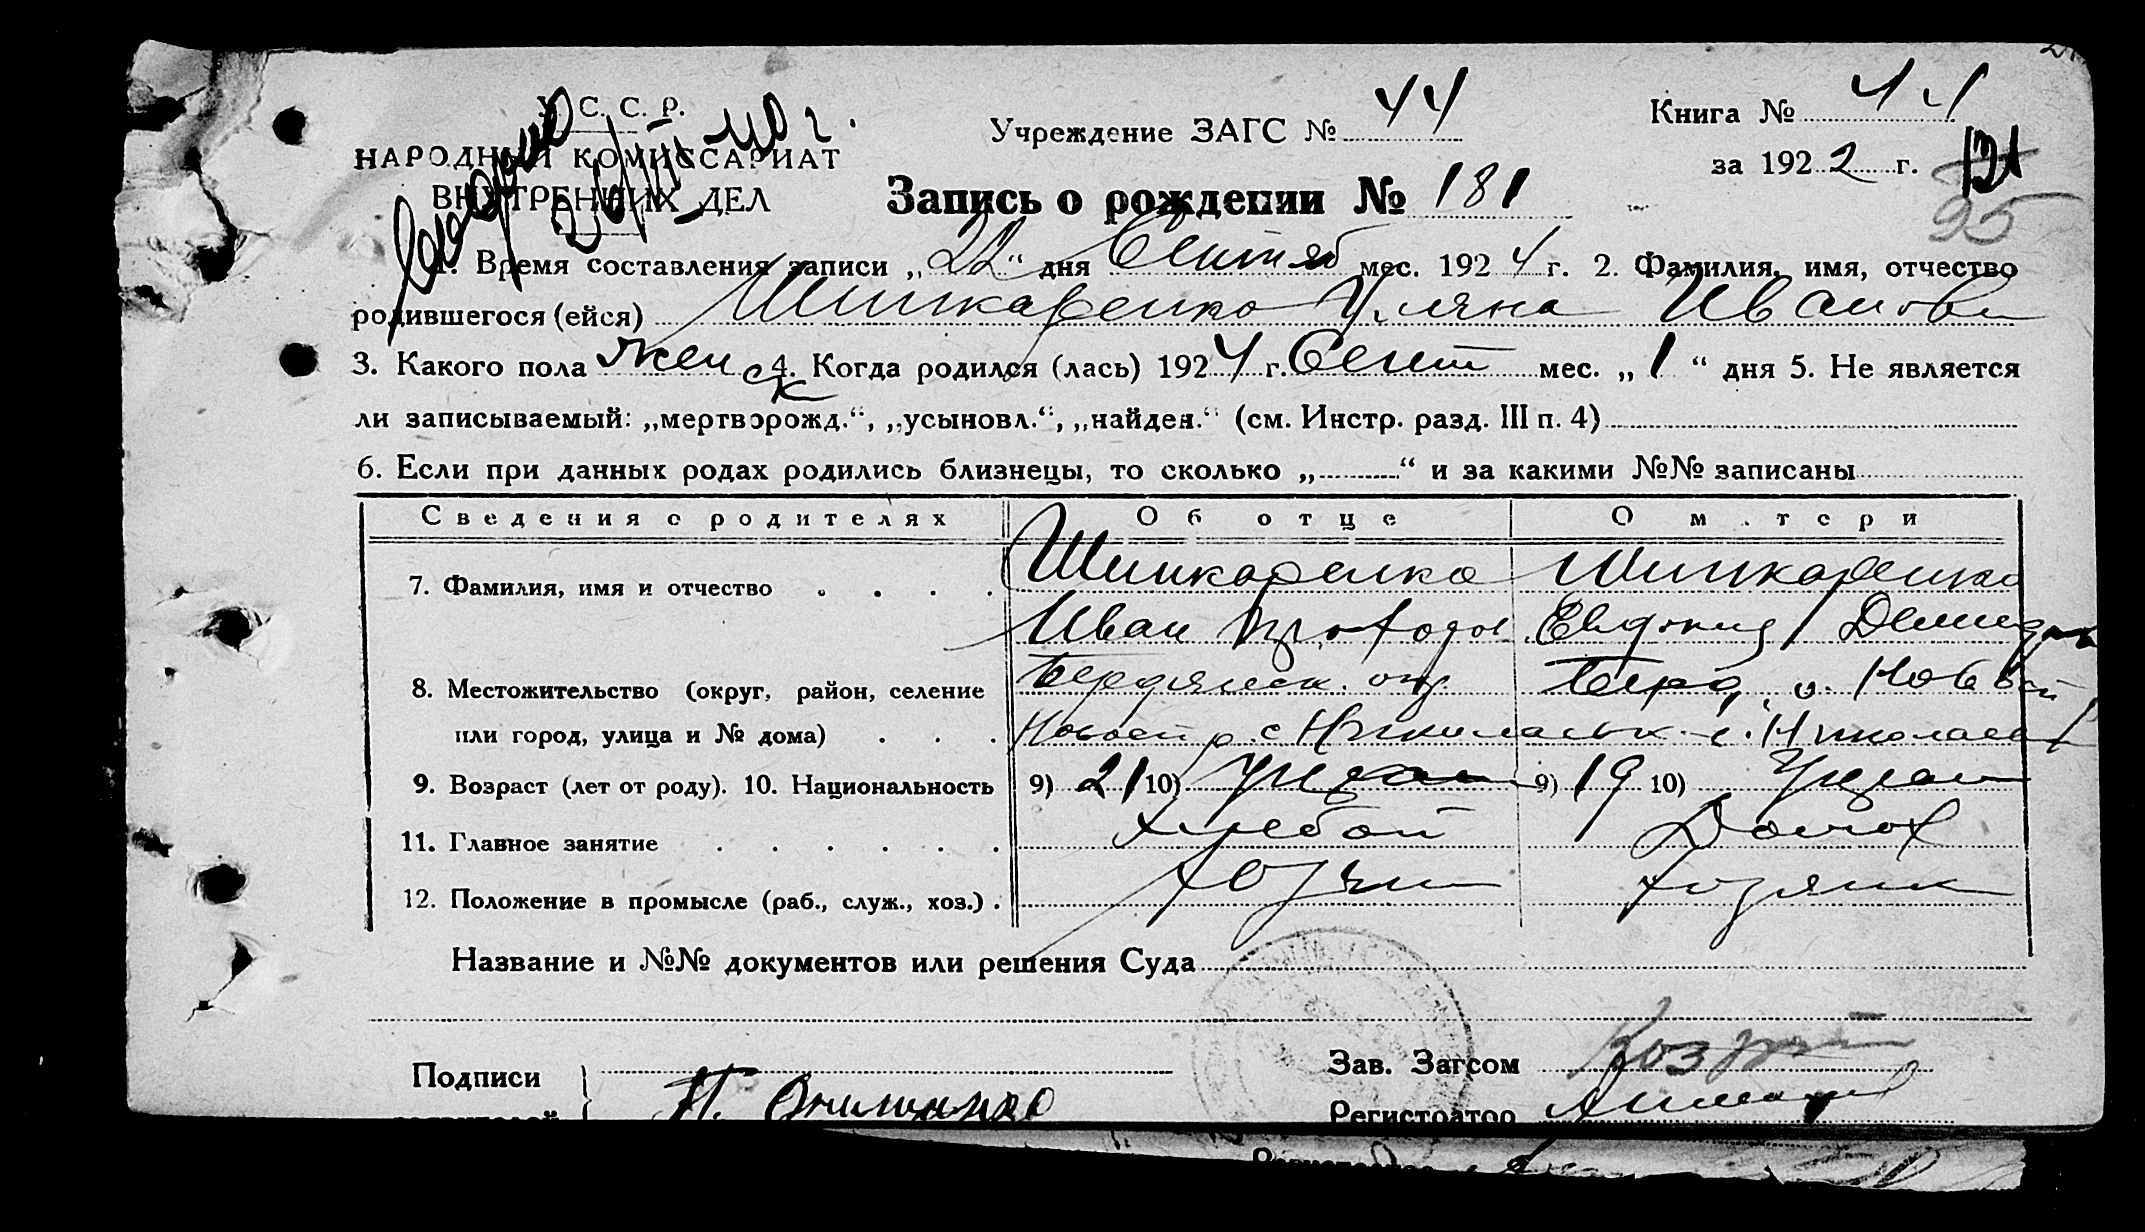 У. С. С. Р.
НАРОДНЫЙ КОМИССАРИАТ
ВНУТРЕННИХ ДЕЛ
Учреждение ЗАГС № 44
Книга № 44
за 1922 г.
121
95
Запись о рождении № 181
1. Время составления записи „22“ дня Сентяб мес. 1924 г. 2. Фамилия, имя, отчество
родившегося (ейся) Шинкаренко Уляна Иванов
3. Какого пола женск 4. Когда родился (лась) 1924 г. Сент мес. „1“ дня 5. Не является
ли записываемый: „мертворожд.“, „усыновл.“, „найден.“ (см. Инстр. разд. III п. 4)
6. Если при данных родах родились близнецы, то сколько „ “ и за какими №№ записаны
Сведения о родителях Об отце О матери
7. Фамилия, имя и отчество Шинкаренко Шинкаренко
Иван Евдокия Демидов
8. Местожительство (округ, район, селение Бердянск. окр. Берд. о. Новов
или город, улица и № дома) Новосп р с Николаевк с. Николаевк
9. Возраст (лет от роду). 10. Национальность 9) 21 10) Украин 9) 19 10) Украин
11. Главное занятие хлебоп Домох
12. Положение в промысле (раб., служ., хоз.) Хозяин хозяйк
Название и №№ документов или решения Суда
Подписи
Зав. Загсом
Регистратор